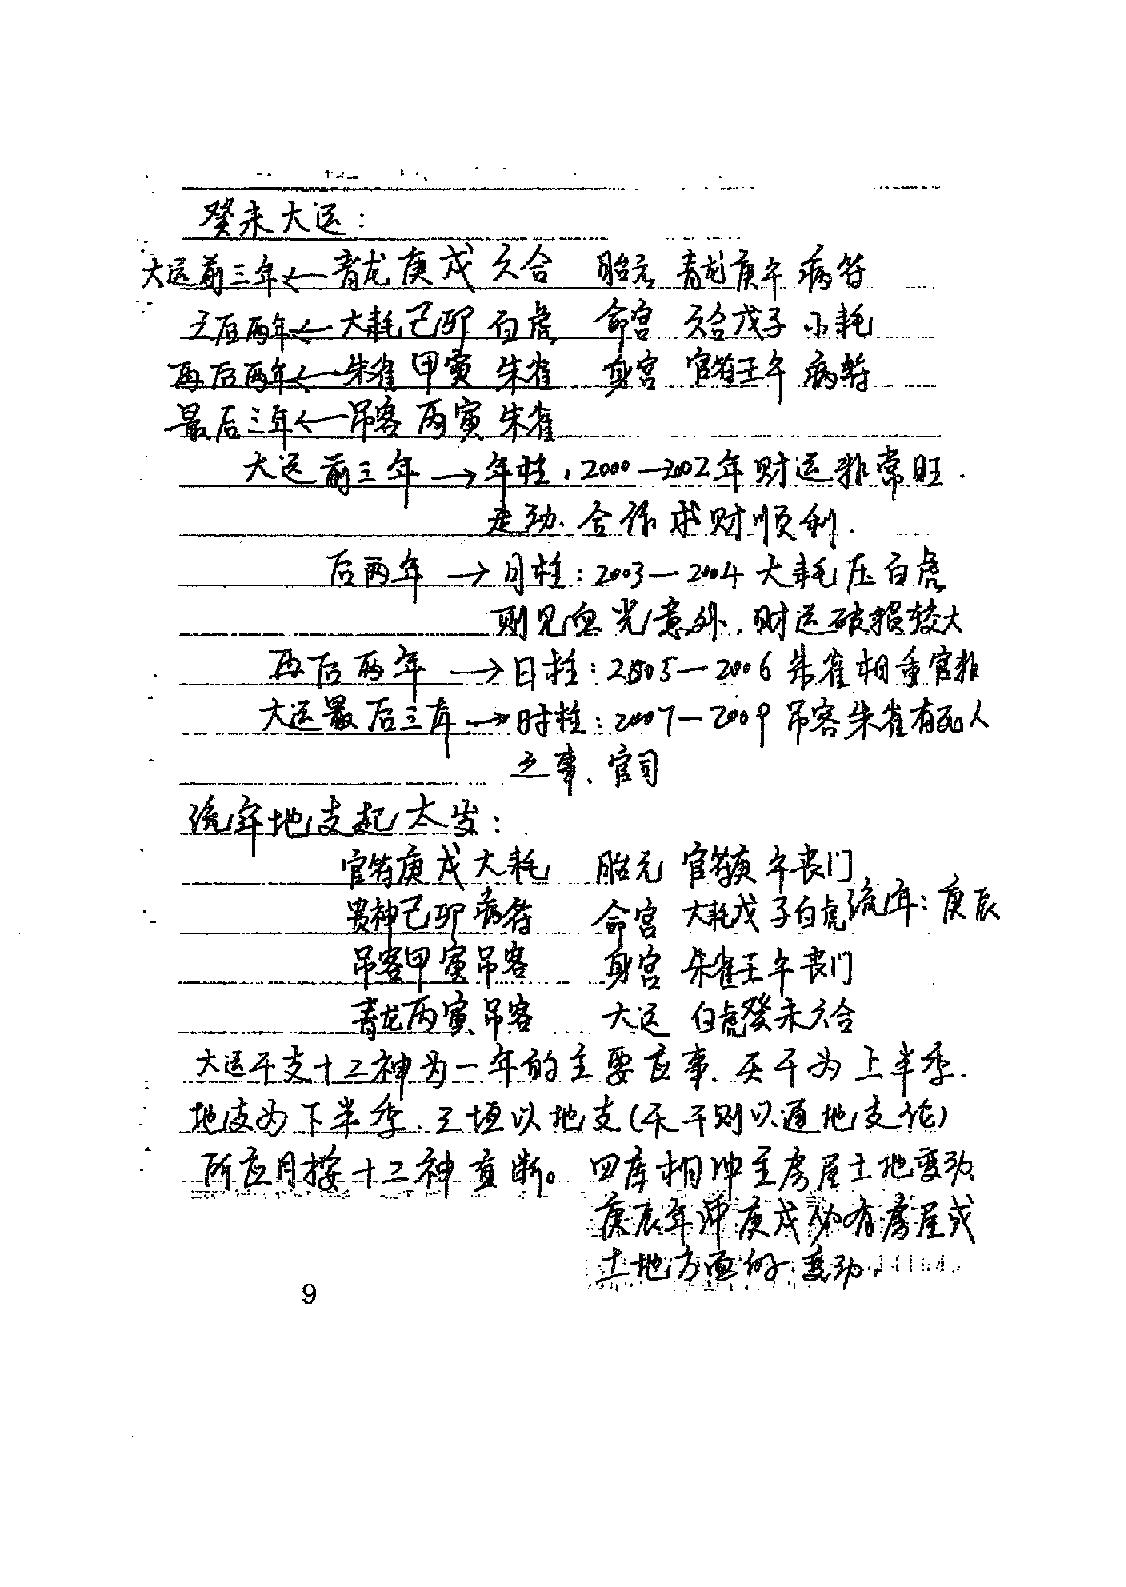 癸未大运：
大运前三年←青龙庚戌六合 胎元 青龙庚午病符
之后两年←大耗己卯白虎 命宫 六合戊子小耗
再后两年←朱雀甲寅朱雀 身宫 官符壬午病符
最后三年←吊客丙寅朱雀
大运前三年→年柱，2000—2002年财运非常旺.
走动、合作求财顺利.
后两年→月柱：2003—2004大耗压白虎
则见血光意外，财运破损较大
再后两年→日柱：2005—2006朱雀相重官非
大运最后三年→时柱：2007—2009吊客朱雀有死人
之事、官司
流年地支起太岁：
官符庚戌大耗 胎元 官符庚午丧门
贵神己卯病符 命宫 大耗戊子白虎 流年：庚辰
吊客甲寅吊客 身宫 朱雀壬午丧门
青龙丙寅吊客 大运 白虎癸未六合
大运干支十二神为一年的主要应事、天干为上半季.
地支为下半季.三垣以地支(天干则以通地支论)
所应月按十二神直断。四库相冲主房屋土地变动
庚辰年冲庚戌必有房屋或
土地方面的变动.
9